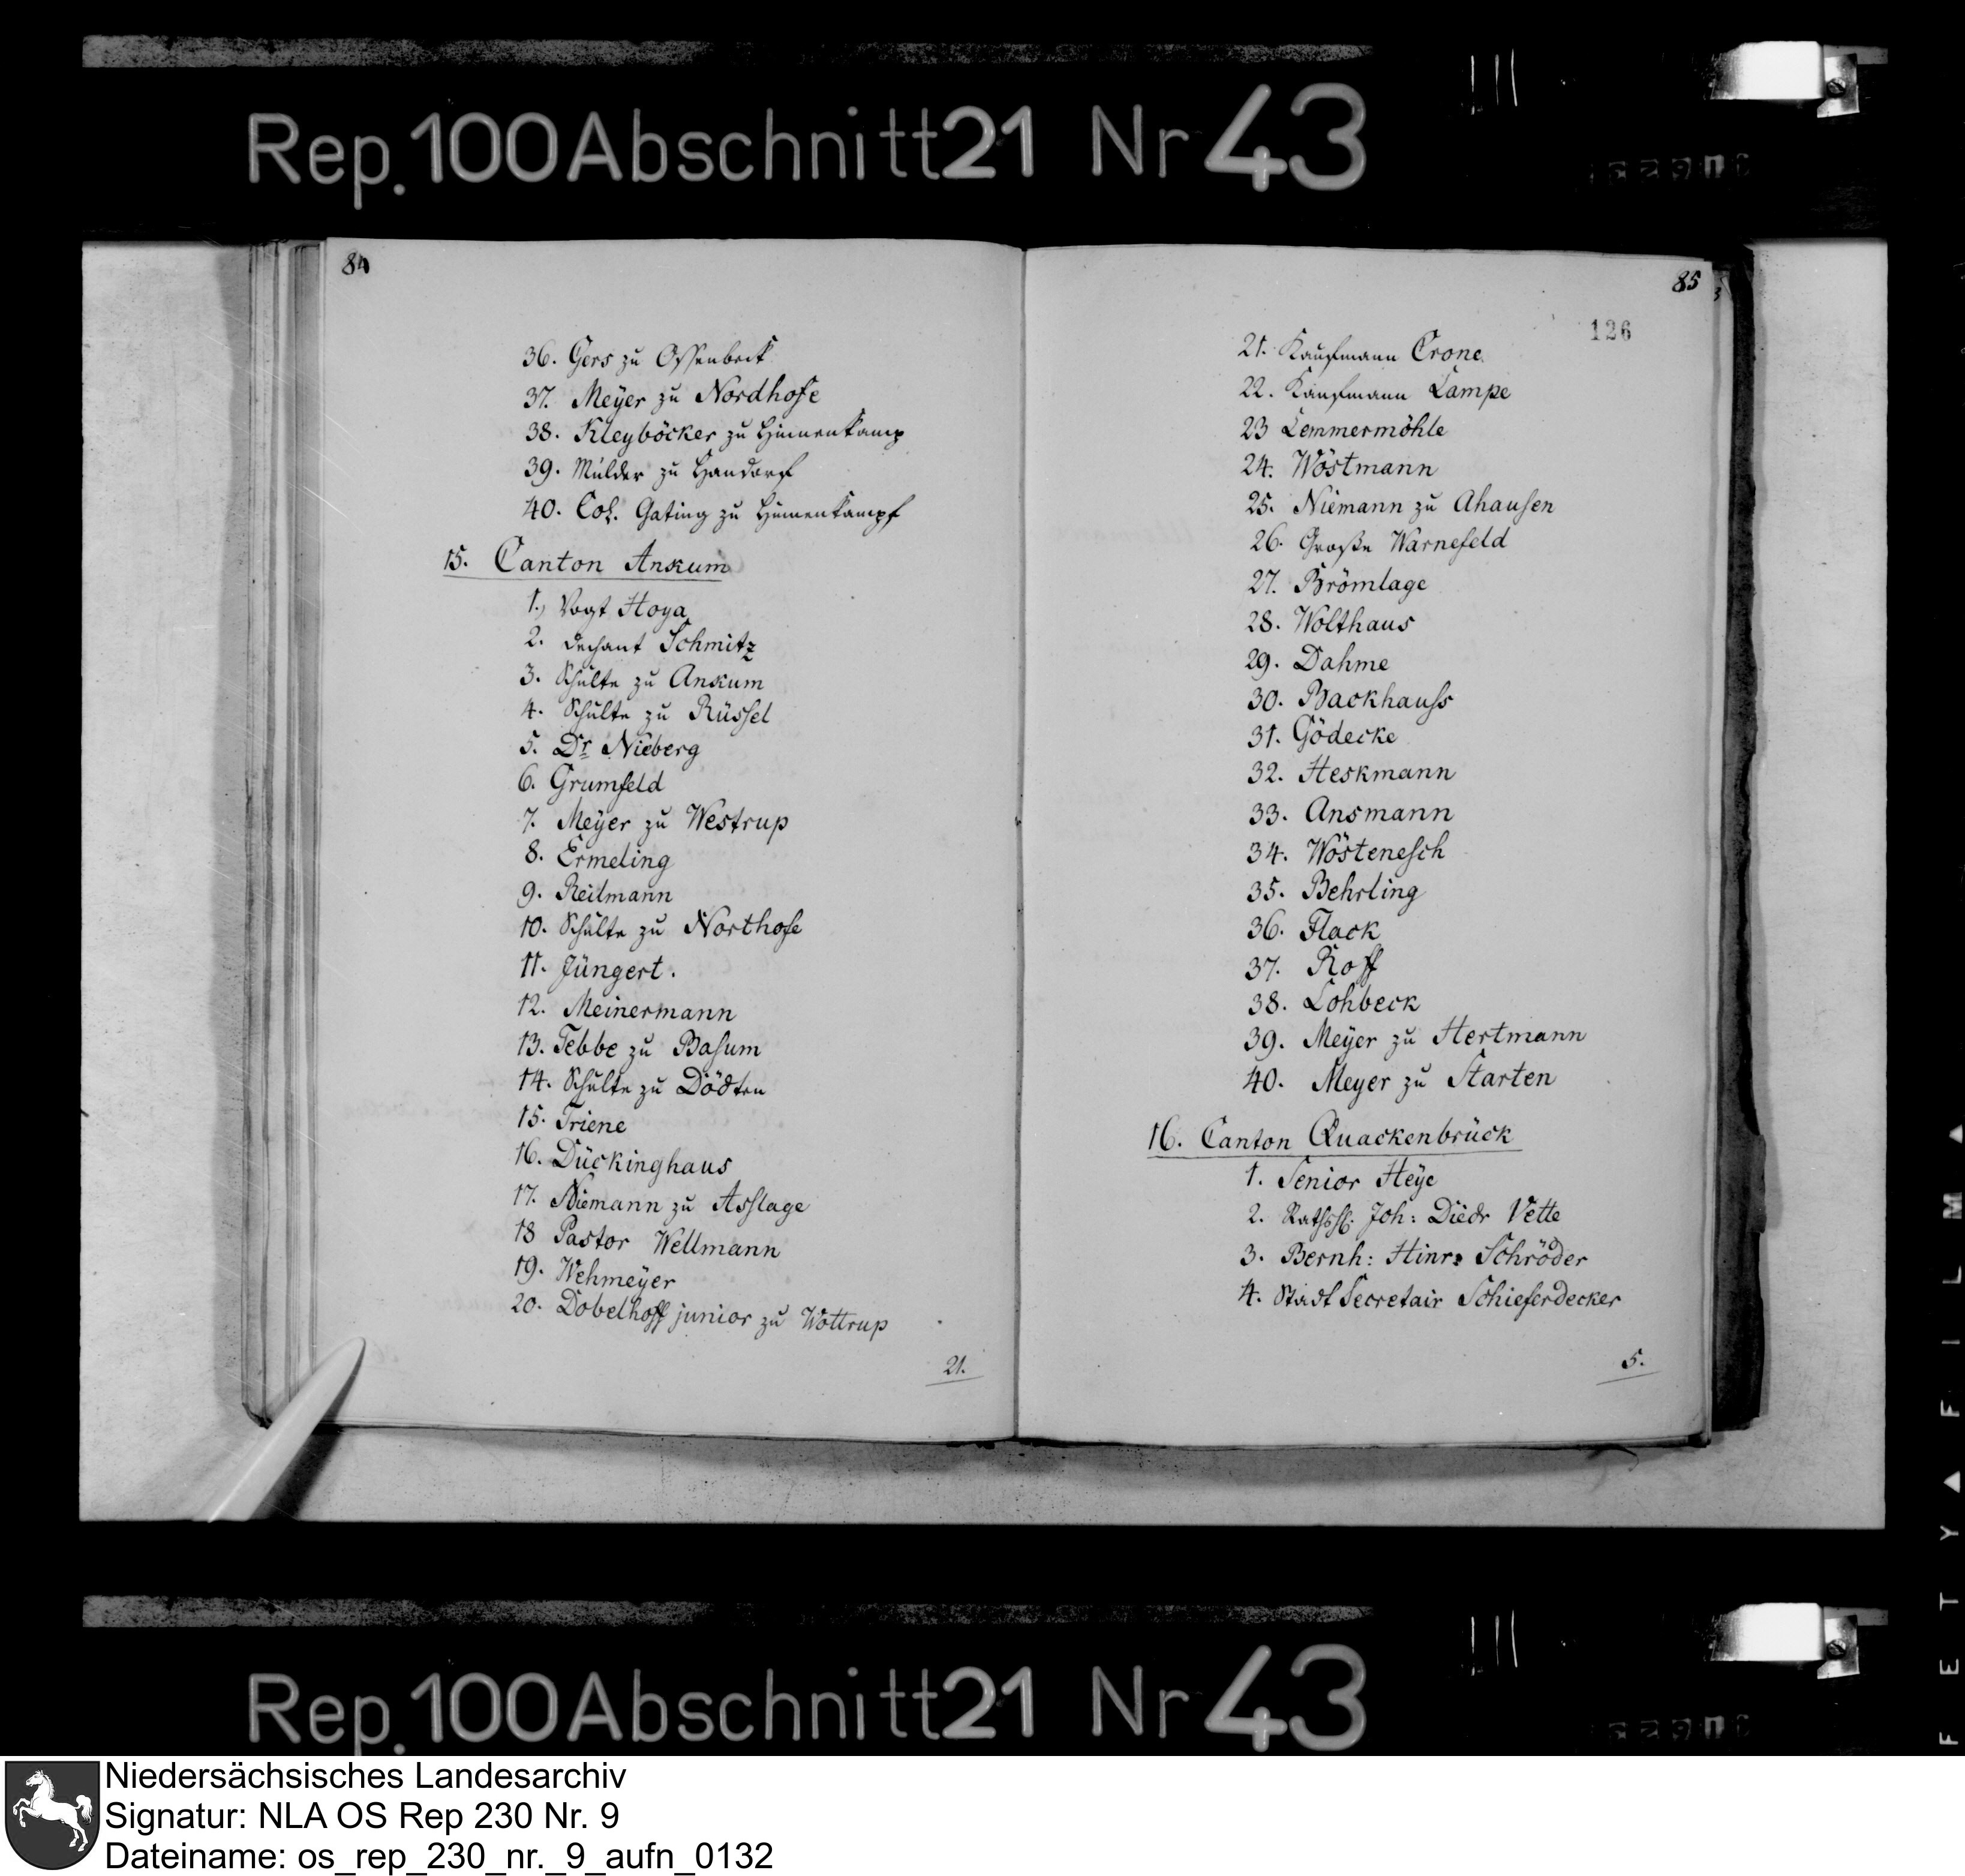 Rep. 100 Abschnitt 21 Nr 43
84
36. Gers zu Ossenbeck
37. Meÿer zu Nordhofe
38. Kleyböcker zu Himenkamp
39. Mülder zu Handorf
40. Col. Gating zu Himenkampf
15. Canton Ankum
1., Vogt Hoya
2. Dechant Schmitz
3. Schulte zu Ankum
4. Schulte zu Rüssel
5. Dr Nieberg
6. Grumfeld
7. Meÿer zu Westrup
8. Ermeling
9. Reilmann
10. Schulte zu Northofe
11. Jüngert.
12. Meinermann
13. Tebbe zu Basum
14. Schulte zu Dödten
15. Triene
16. Dückinghaus
17. Niemann zu Asslage
18 Pastor Wellmann
19. Wehmeÿer
20. Dobelhoff junior zu Wottrup
21.
85
126
21. Kaufmann Crone
22. Kaufmann Lampe
23 Lemmermöhle
24. Wöstmann
25. Niemann zu Ahausen
26. Große Warnefeld
27. Brömlage
28. Wolthaus
29. Dahme
30. Backhauss
31. Gödecke
32. Heskmann
33. Ansmann
34. Wöstenesch
35. Behrling
36. Flack
37. Roff
38. Lohbeck
39. Meÿer zu Hertmann
40. Meyer zu Starten
16. Canton Quackenbrück
1. Senior Heÿe
2. Joh: Diedr Vette
3. Bernh: Hinr: Schröder
4. Stadt Secretair Schieferdecker
5.
Rep. 100 Abschnitt 21 Nr 43
Niedersächsisches Landesarchiv
Signatur: NLA OS Rep 230 Nr. 9
Dateiname: os_rep_230_nr._9_aufn_0132